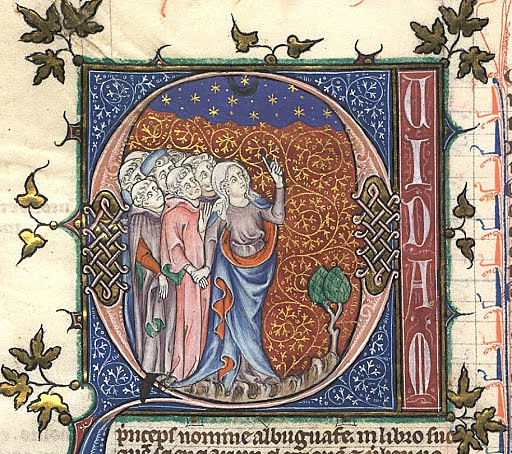 QUIDAM
p̃nceps nomine albuguafe. in libro suo